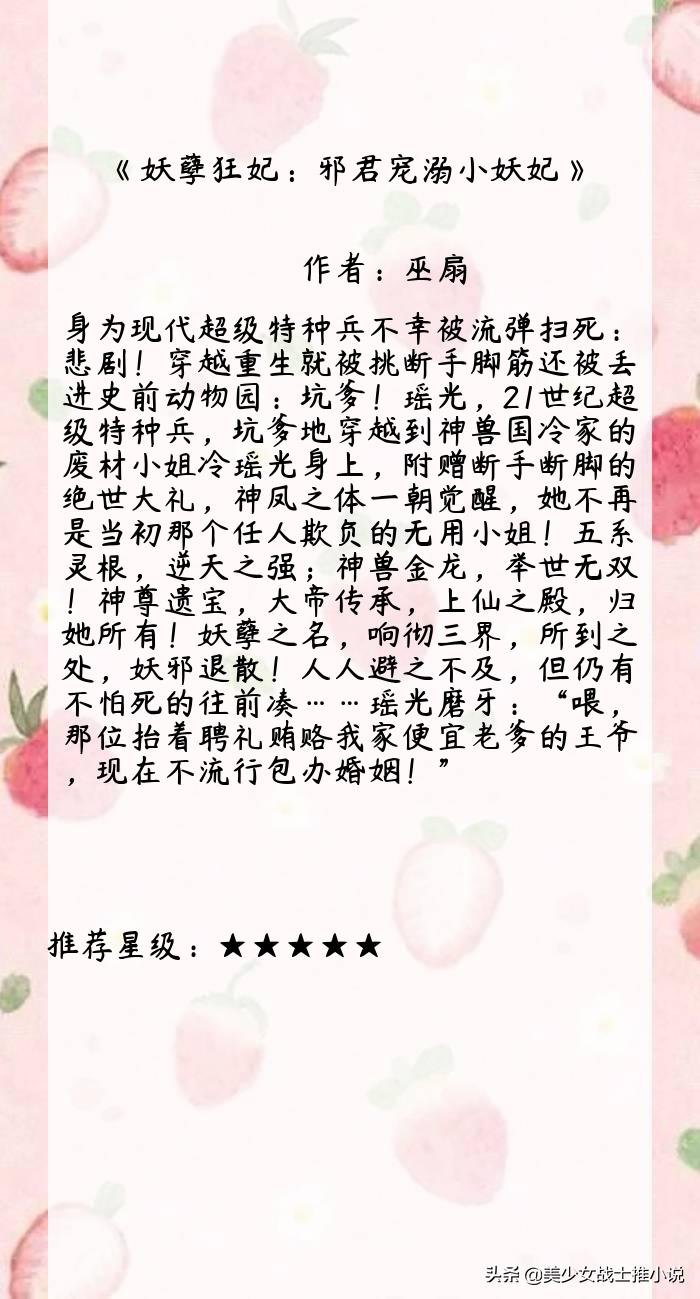 《妖孽狂妃：邪君宠溺小妖妃》
作者：巫扇
身为现代超级特种兵不幸被流弹扫死：
悲剧！穿越重生就被挑断手脚筋还被丢
进史前动物园：坑爹！瑶光，21世纪超
级特种兵，坑爹地穿越到神兽国冷家的
废材小姐冷瑶光身上，附赠断手断脚的
绝世大礼，神凤之体一朝觉醒，她不再
是当初那个任人欺负的无用小姐！五系
灵根，逆天之强；神兽金龙，举世无双
！神尊遗宝，大帝传承，上仙之殿，归
她所有！妖孽之名，响彻三界，所到之
处，妖邪退散！人人避之不及，但仍有
不怕死的往前凑……瑶光磨牙：“喂，
那位抬着聘礼贿赂我家便宜老爹的王爷
，现在不流行包办婚姻！”
推荐星级：★★★★★
头条 @美少女战士推小说